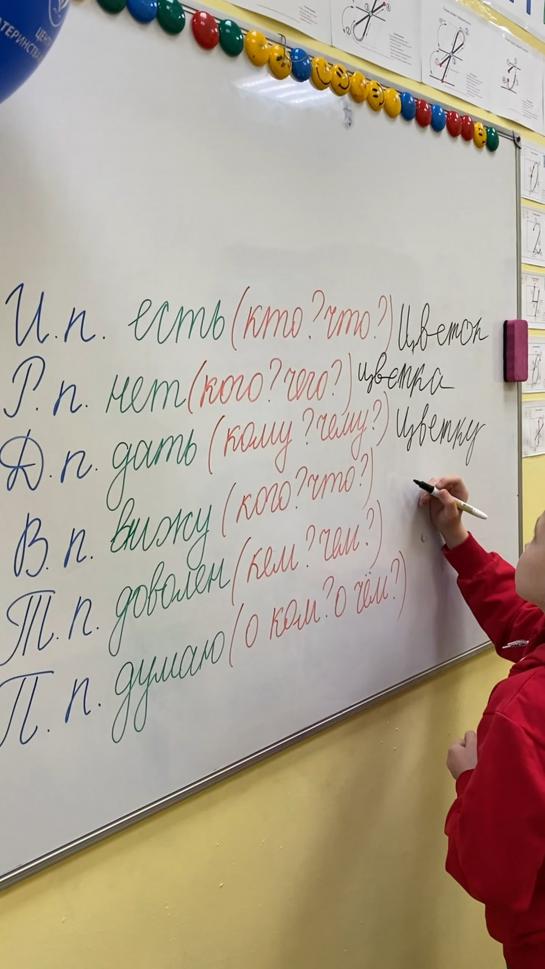 И.п. есть (кто? что?) Цветок
Р.п. нет (кого? чего?) цветка
Д.п. дать (кому? чему?) Цветку
В.п. вижу (кого? что?)
Т.п. доволен (кем? чем?)
П.п. думаю (о ком? о чём?)